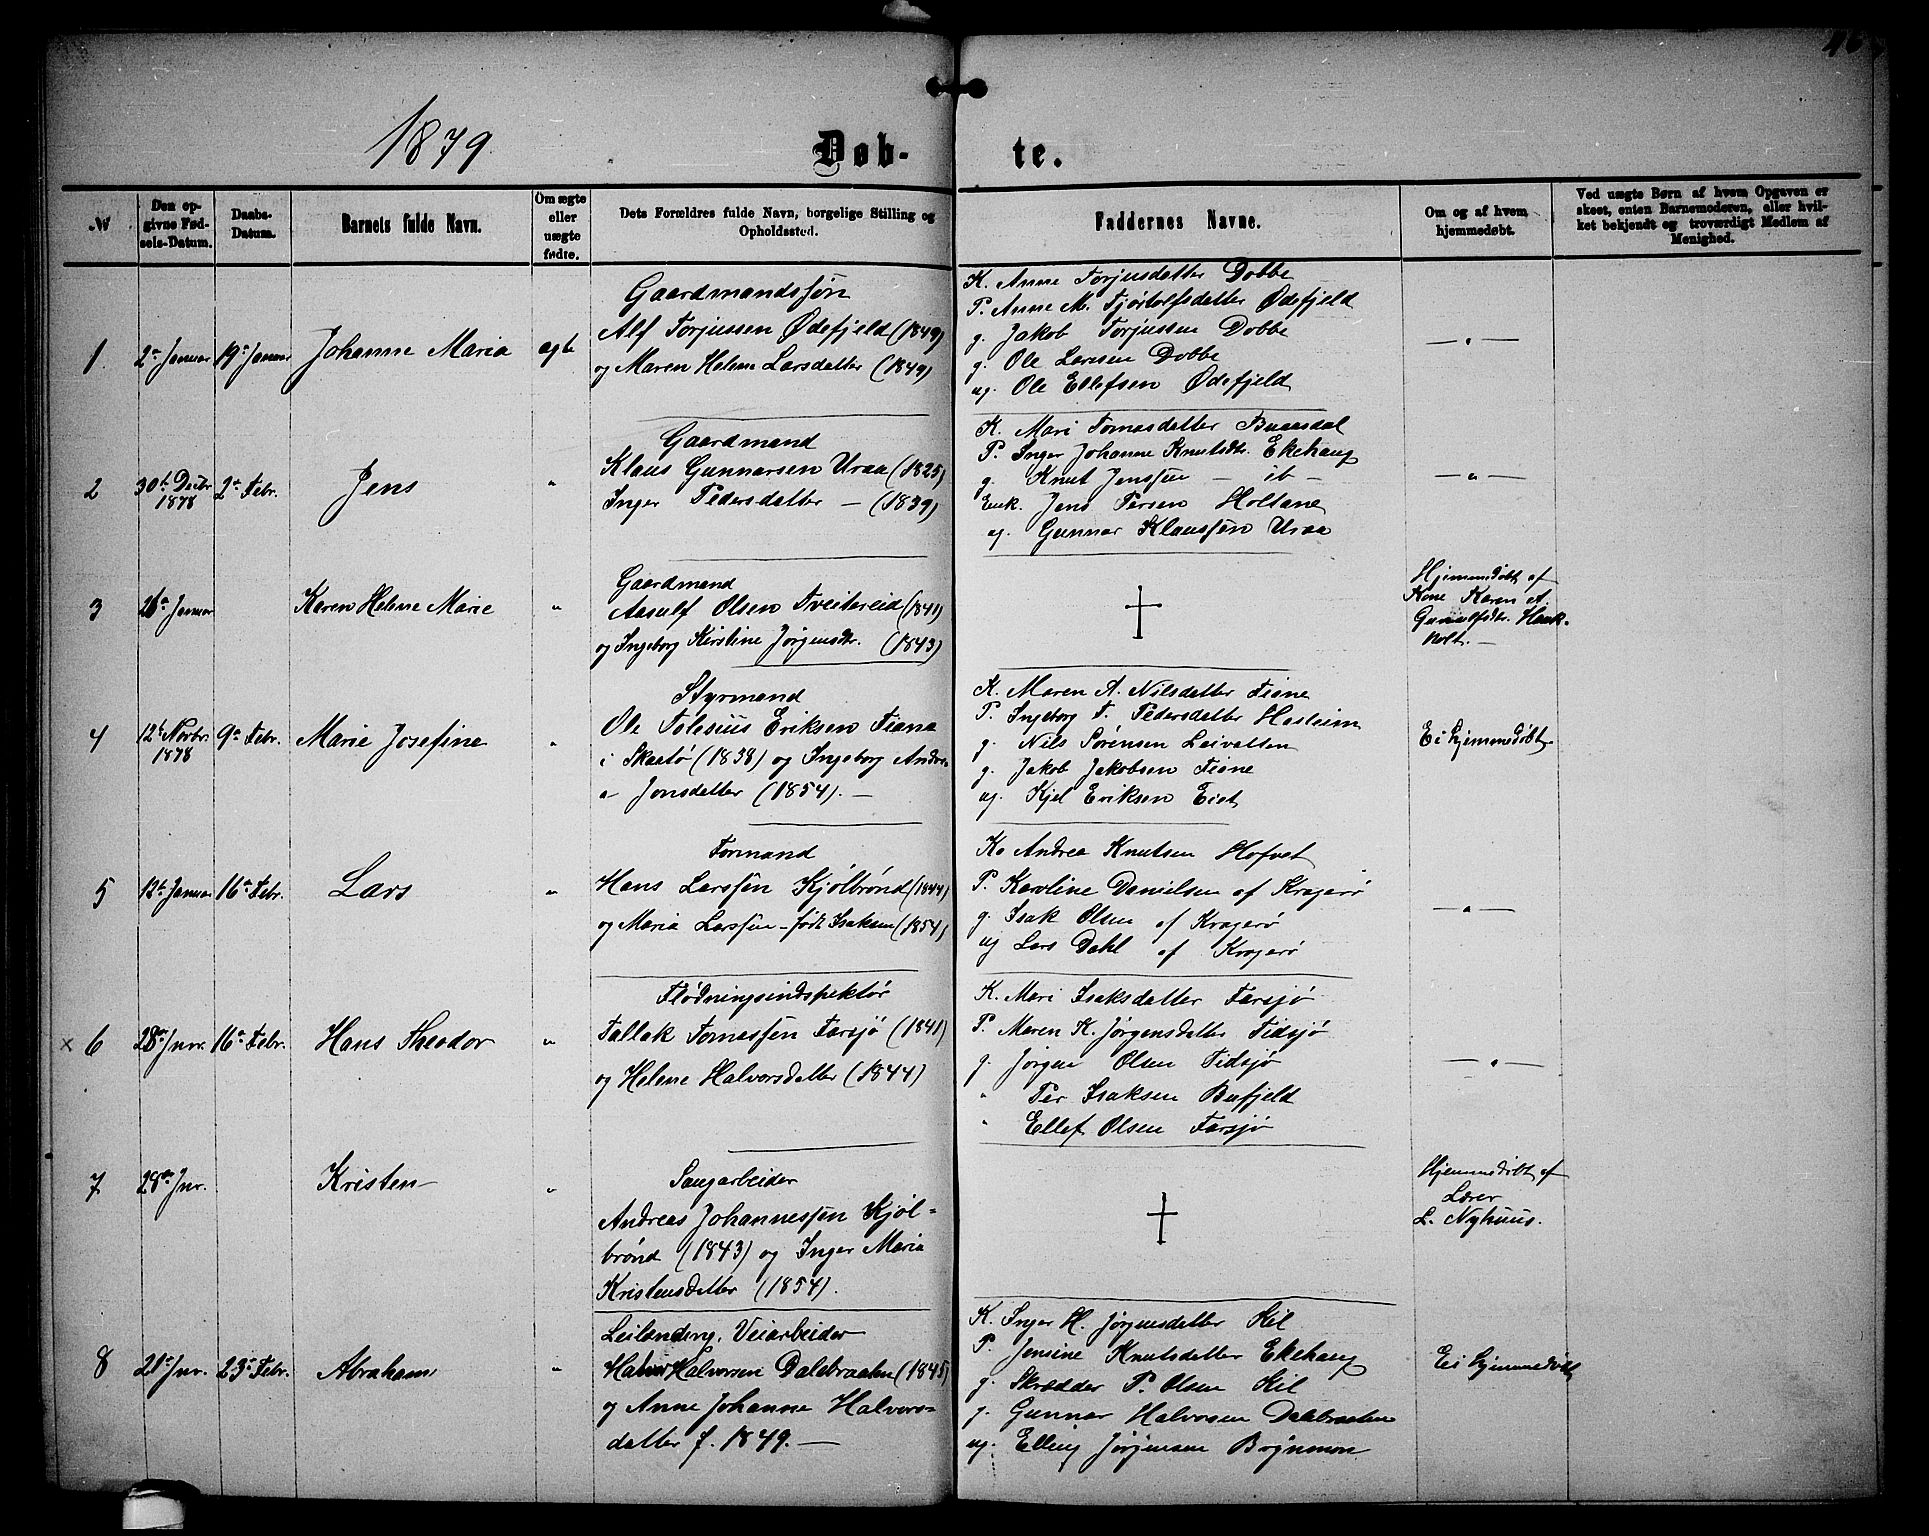 1879
Døb-
te.
№
Den op-
givne Fød-
sels-Datum.
Daabs-
Datum.
Barnets fulde Navn.
Om ægte
eller
uægte
fødte.
Dets Forældres fulde Navn, borgelige Stilling og
Opholdssted.
Faddernes Navne.
Om og af hvem
hjemmedøbt.
Ved uægte Børn af hvem Opgaven er
skeet, enten Barnemoderen, eller hvil-
ket bekjendt og troværdigt Medlem af
Menighed.
1.
2den Januar
19de Januar
Johanne Maria
ægte
Gaardmandssøn
Alf Torjussen Ødefjeld (1849)
og Maren Helene Larsdatter (1849)
K. Anne Torjusdatter Dobbe
P. Anne M. Tjøstolfsdatter Ødefjeld
g. Jakob Torjussen Dobbe
g. Ole Larssen Dobbe
ug. Ole Ellefsen Ødefjeld
— " —
2
30te Decbr
1878
2den Febr.
Jens
"
Gaardmand
Klaus Gunnarsen Uraa (1825)
Inger Pedersdatter — (1839)
K. Mari Tomasdatter
P. Inger Johanne Knutsdtr. Ekehaug
g. Knut Jenssen — ib —
Enk. Jens Persen Holtane
ug. Gunnar Klaussøn Uraa
— " —
3
26de Januar
Karen Helene Marie
"
Gaardmand
Aasulf Olsen Tveitereid (1841)
og Ingeborg Kirstine Jørgensdtr. (1843)
†
Hjemmedøbt af
Kone Karen A.
Gunulfsdtr. Hauk-
holt.
4
12te Novbr.
1878
9de Febr.
Marie Josefine
"
Styrmand
Ole Tolesius Eriksen Fiane
i Skaatø (1838) og Ingeborg Andre-
a Jonsdatter (1854). —
K. Maren A. Nilsdatter Fiane
P. Ingeborg T. Pedersdatter Hesleim
g. Nils Sørensen Leivatten
g. Jakob Jakobsen Fiane
ug. Kjel Eriksen Eiet
Ei hjemmedøbt
5
12te Januar
16de Febr.
Lars
"
Formand
Hans Larssøn Kjølbrønd (1844)
og Maria Larssøn - født Isaksen (1854)
K. Andrea Knutsen Hofvet
P. Karoline Danielsen af Kragerø
g. Isak Olsen af Kragerø
ug Lars Dahl af Kragerø
— " —
× 6
28de Jnr.
16de Febr.
Hans Theodor
"
Flødningsindspektør
Tallak Tomassøn Farsjø (1841)
og Helene Halvorsdatter (1844)
K. Mari Isaksdatter Farsjø
P. Maren K. Jørgensdatter Tidsjø
g. Jørgen Olsen Tidsjø
" Per Isaksen Bufjeld
" Ellef Olsen Farsjø
— " —
7
28de Jnr.
Kristen
"
Saugarbeider
Andreas Johannessøn Kjøl-
brønd (1843) og Inger Maria
Kristensdatter (1854).
†
Hjemmedøbt af
Lærer
L. Nyhuus.
8
21de Jnr.
23de Febr.
Abraham
"
Leilænding, Veiarbeider
Halvor Halvorsen Dalebraaten (1845)
og Anne Johanne Halvors-
datter f. 1849. —
K. Inger H. Jørgensdatter Kil
P. Jensine Knutsdatter Ekehaug
g. Skrædder P. Olsen Kil
g. Gunnar Halvorsen Dalebraaten
ug. Elling Jørgensen Brynmon
Ei hjemmedøbt